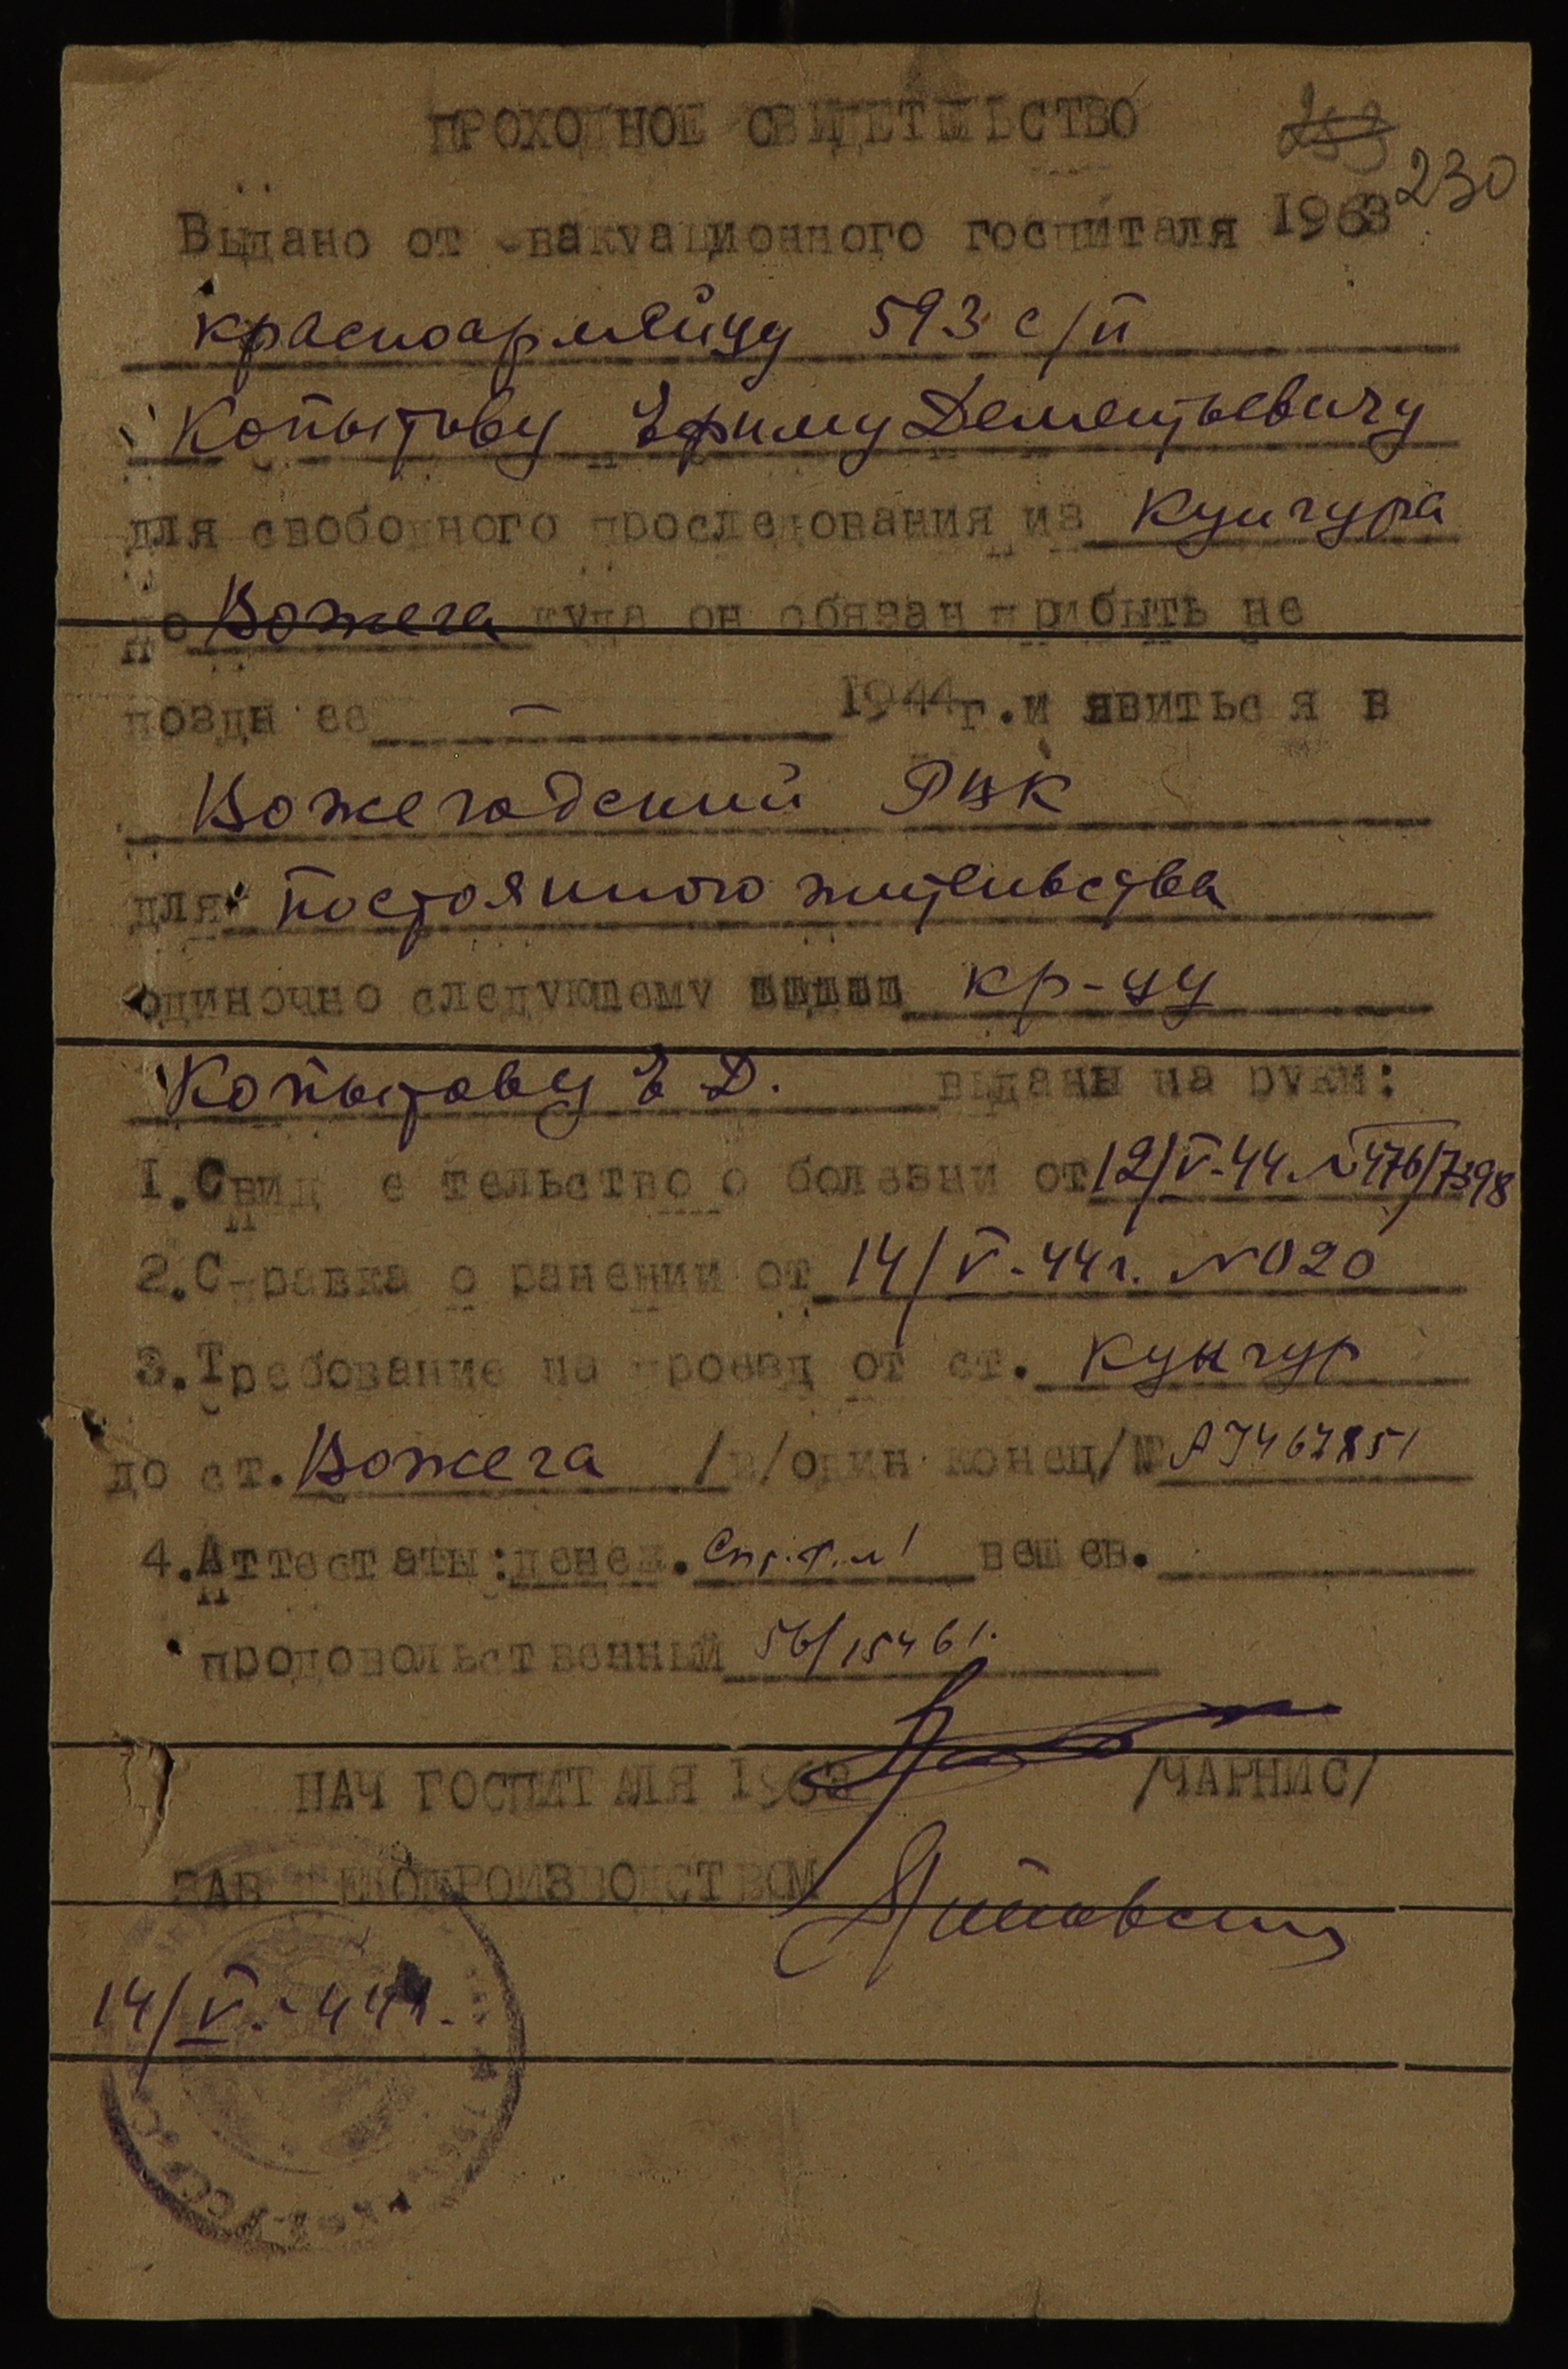 ПРОХОДНОЕ СВИДЕТЕЛЬСТВО
230
Выдано от эвакуационного госпиталя 1963
красноармейцу 593 с/п
Копытову Ефиму Дементьевичу
для свободного проследования из Кунгура
до Вожега куда он обязан прибыть не
позднее — 1944г. и явиться в
Вожегодский РВК
для постоянного жительства
одиночно следующему кр-цу
Копытову Е Д. выданы на руки:
1. Свидетельство о болезни от 12/V-44. №476/7398
2. Справка о ранении от 14/V-44г. №020
3. Требование на проезд от ст. Кунгур
до ст. Вожега /в/один конец/№
4. Аттестаты: денеж. вещев.
продовольственный 56/15461.
НАЧ ГОСПИТАЛЯ 1963 /ЧАРНИС/
ЗАВ ДЕЛОПРОИЗВОДСТВОМ
14/V-44г.